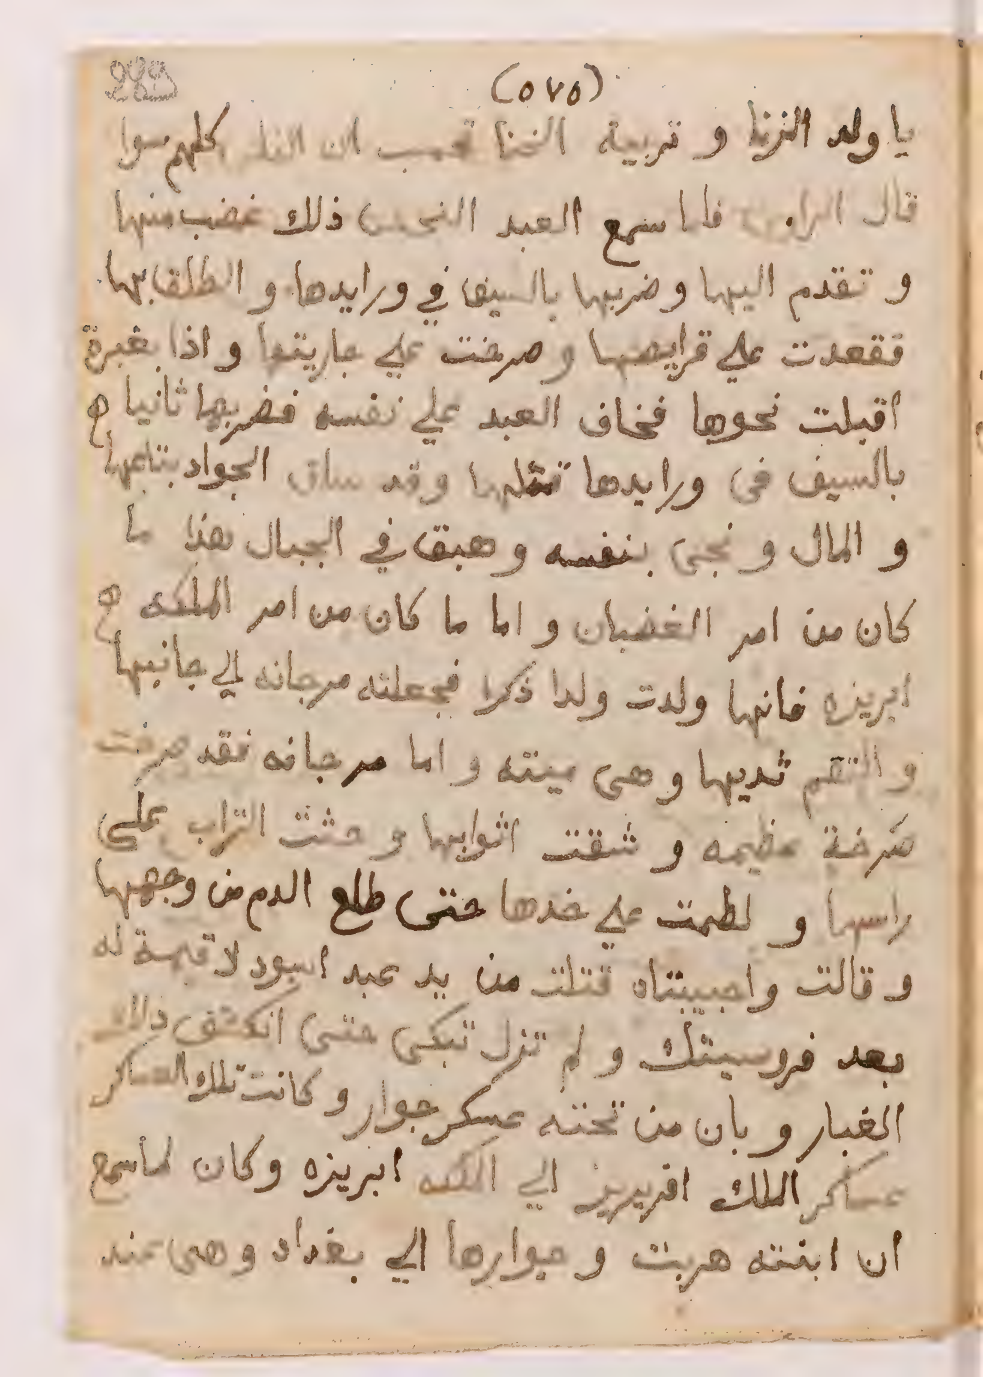 (٥٧٥)
يا ولد الزنا و تربية الخنا تحسب ان الناس كلهم سوا
قال الراوي فلما سمع العبد النحس ذلك غضب منها
و تقدم اليها وضربها بالسيف في ورايدها و الطلقا بها
فقعدت علي قرايصها و صرخت علي جاريتها و اذا بغبرة
اقبلت نحوها فخاف العبد علي نفسه فضربها ثانيا
بالسيف في ورايدها قتلها وقد ساق الجواد بتاعها
و المال و نجى بنفسه و هبق في الجبال هذا ما
كان من امر الغضبان و اما ما كان من امر الملكه
ابريزه فانها ولدت ولدا ذكرا فجعلته مرجانه الي جانبها
و التقم ثديها و هى ميته و اما مرجانه فقد صرخت
صرخة عظيمه و شقت اثوابها و حثت التراب على
راسها و لطمت علي خدها حتى طلع الدم من وجهها
و قالت واحبيبتاه قتلت من يد عبد اسود لا قيمة له
بعد فروسيتك و لم تزل تبكى حتى انكشف ذلك
الغبار و بان من تحته عسكر جوار و كانت تلك العساكر
عساكر الملك افريريز الي الملكه ابريزه وكان لما سمع
ان ابنته هربت و جوارها الي بغداد و هى عند